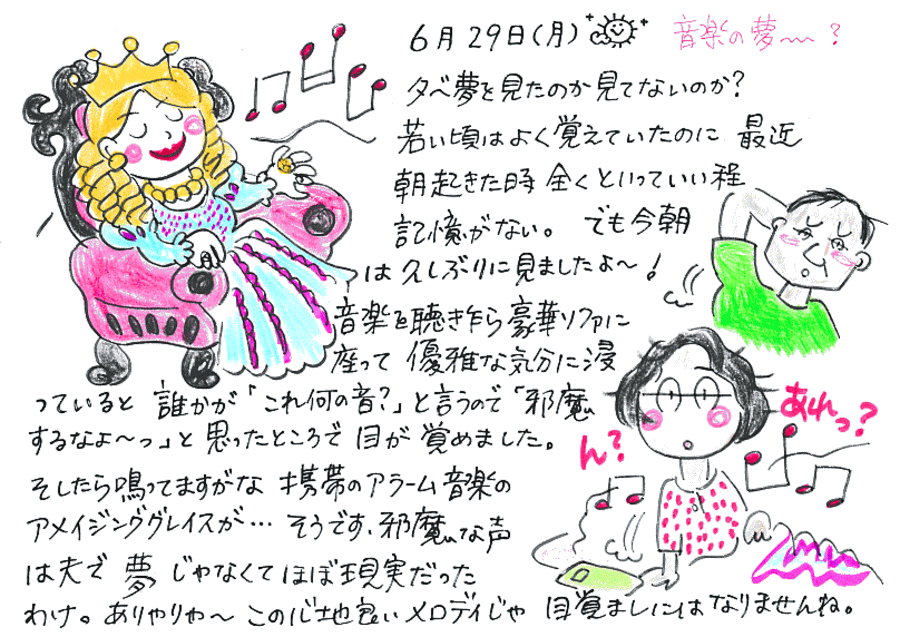 6月29日(月) 音楽の夢〜?
夕べ夢を見たのか見てないのか?
若い頃はよく覚えていたのに 最近
朝起きた時 全くといっていい程
記憶がない。 でも今朝
は久しぶりに見ましたよ〜!
音楽を聴き乍ら豪華ソファに
座って 優雅な気分に浸
っていると 誰かが「これ何の音?」と言うので「邪魔
するなよ〜っ」と思ったところで目が覚めました。
そしたら鳴ってますがな 携帯のアラーム音楽の
アメイジンググレイスが… そうです、邪魔な声
は夫で 夢じゃなくてほぼ現実だった
わけ。ありゃりゃ〜 この心地良いメロディじゃ 目覚ましにはなりませんね。
ん?
あれっ?